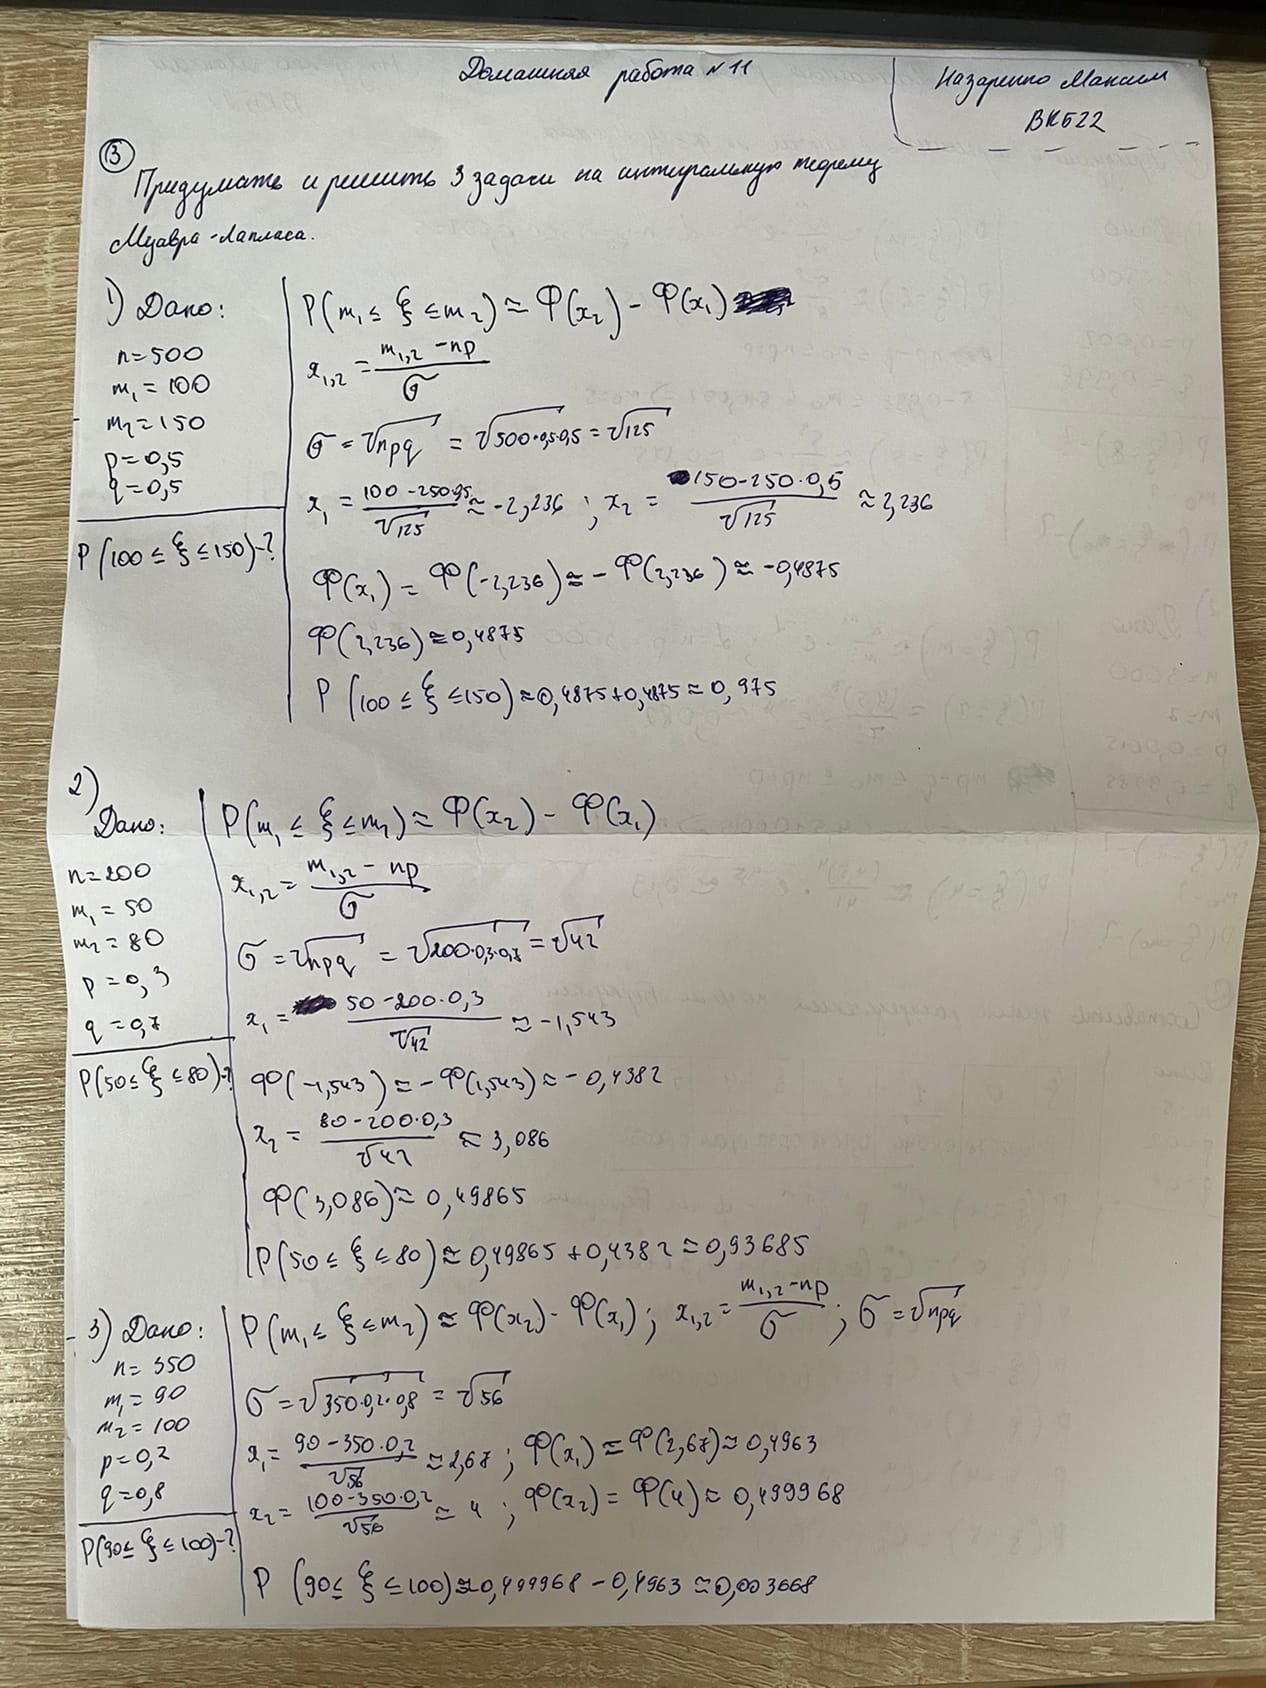 Домашняя работа №11
Назаренко Максим
ВКБ22
③
Придумать и решить 3 задачи на интегральную теорему
Муавра-Лапласа.
1) Дано:
n=500
m₁=100
m₂=150
p=0,5
q=0,5
P(100≤ξ≤150)-?
P(m₁≤ξ≤m₂)≈Φ(x₂)-Φ(x₁)
x₁,₂=(m₁,₂-np)/σ
σ=√npq=√500·0,5·0,5=√125
x₁=(100-250·0,5)/√125≈-2,236; x₂=(150-250·0,5)/√125≈2,236
Φ(x₁)=Φ(-2,236)≈-Φ(2,236)≈-0,4875
Φ(2,236)≈0,4875
P(100≤ξ≤150)≈0,4875+0,4875≈0,975
2)
Дано:
n=200
m₁=50
m₂=80
p=0,3
q=0,7
P(50≤ξ≤80)-?
P(m₁≤ξ≤m₂)≈Φ(x₂)-Φ(x₁)
x₁,₂=(m₁,₂-np)/σ
σ=√npq=√200·0,3·0,7=√42
x₁=(50-200·0,3)/√42≈-1,543
Φ(-1,543)≈-Φ(1,543)≈-0,4382
x₂=(80-200·0,3)/√42≈3,086
Φ(3,086)≈0,49865
P(50≤ξ≤80)≈0,49865+0,4382≈0,93685
3) Дано:
n=350
m₁=90
m₂=100
p=0,2
q=0,8
P(90≤ξ≤100)-?
P(m₁≤ξ≤m₂)≈Φ(x₂)-Φ(x₁); x₁,₂=(m₁,₂-np)/σ; σ=√npq
σ=√350·0,2·0,8=√56
x₁=(90-350·0,2)/√56≈2,67; Φ(x₁)≈Φ(2,67)≈0,4963
x₂=(100-350·0,2)/√56≈4; Φ(x₂)=Φ(4)≈0,499968
P(90≤ξ≤100)≈0,499968-0,4963≈0,003668